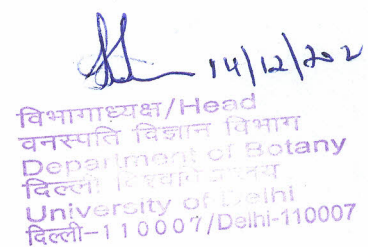 14/12/202
विभागाध्यक्ष/Head
वनस्पति विज्ञान विभाग
Department of Botany
दिल्ली विश्वविद्यालय
University of Delhi
दिल्ली-110007/Delhi-110007